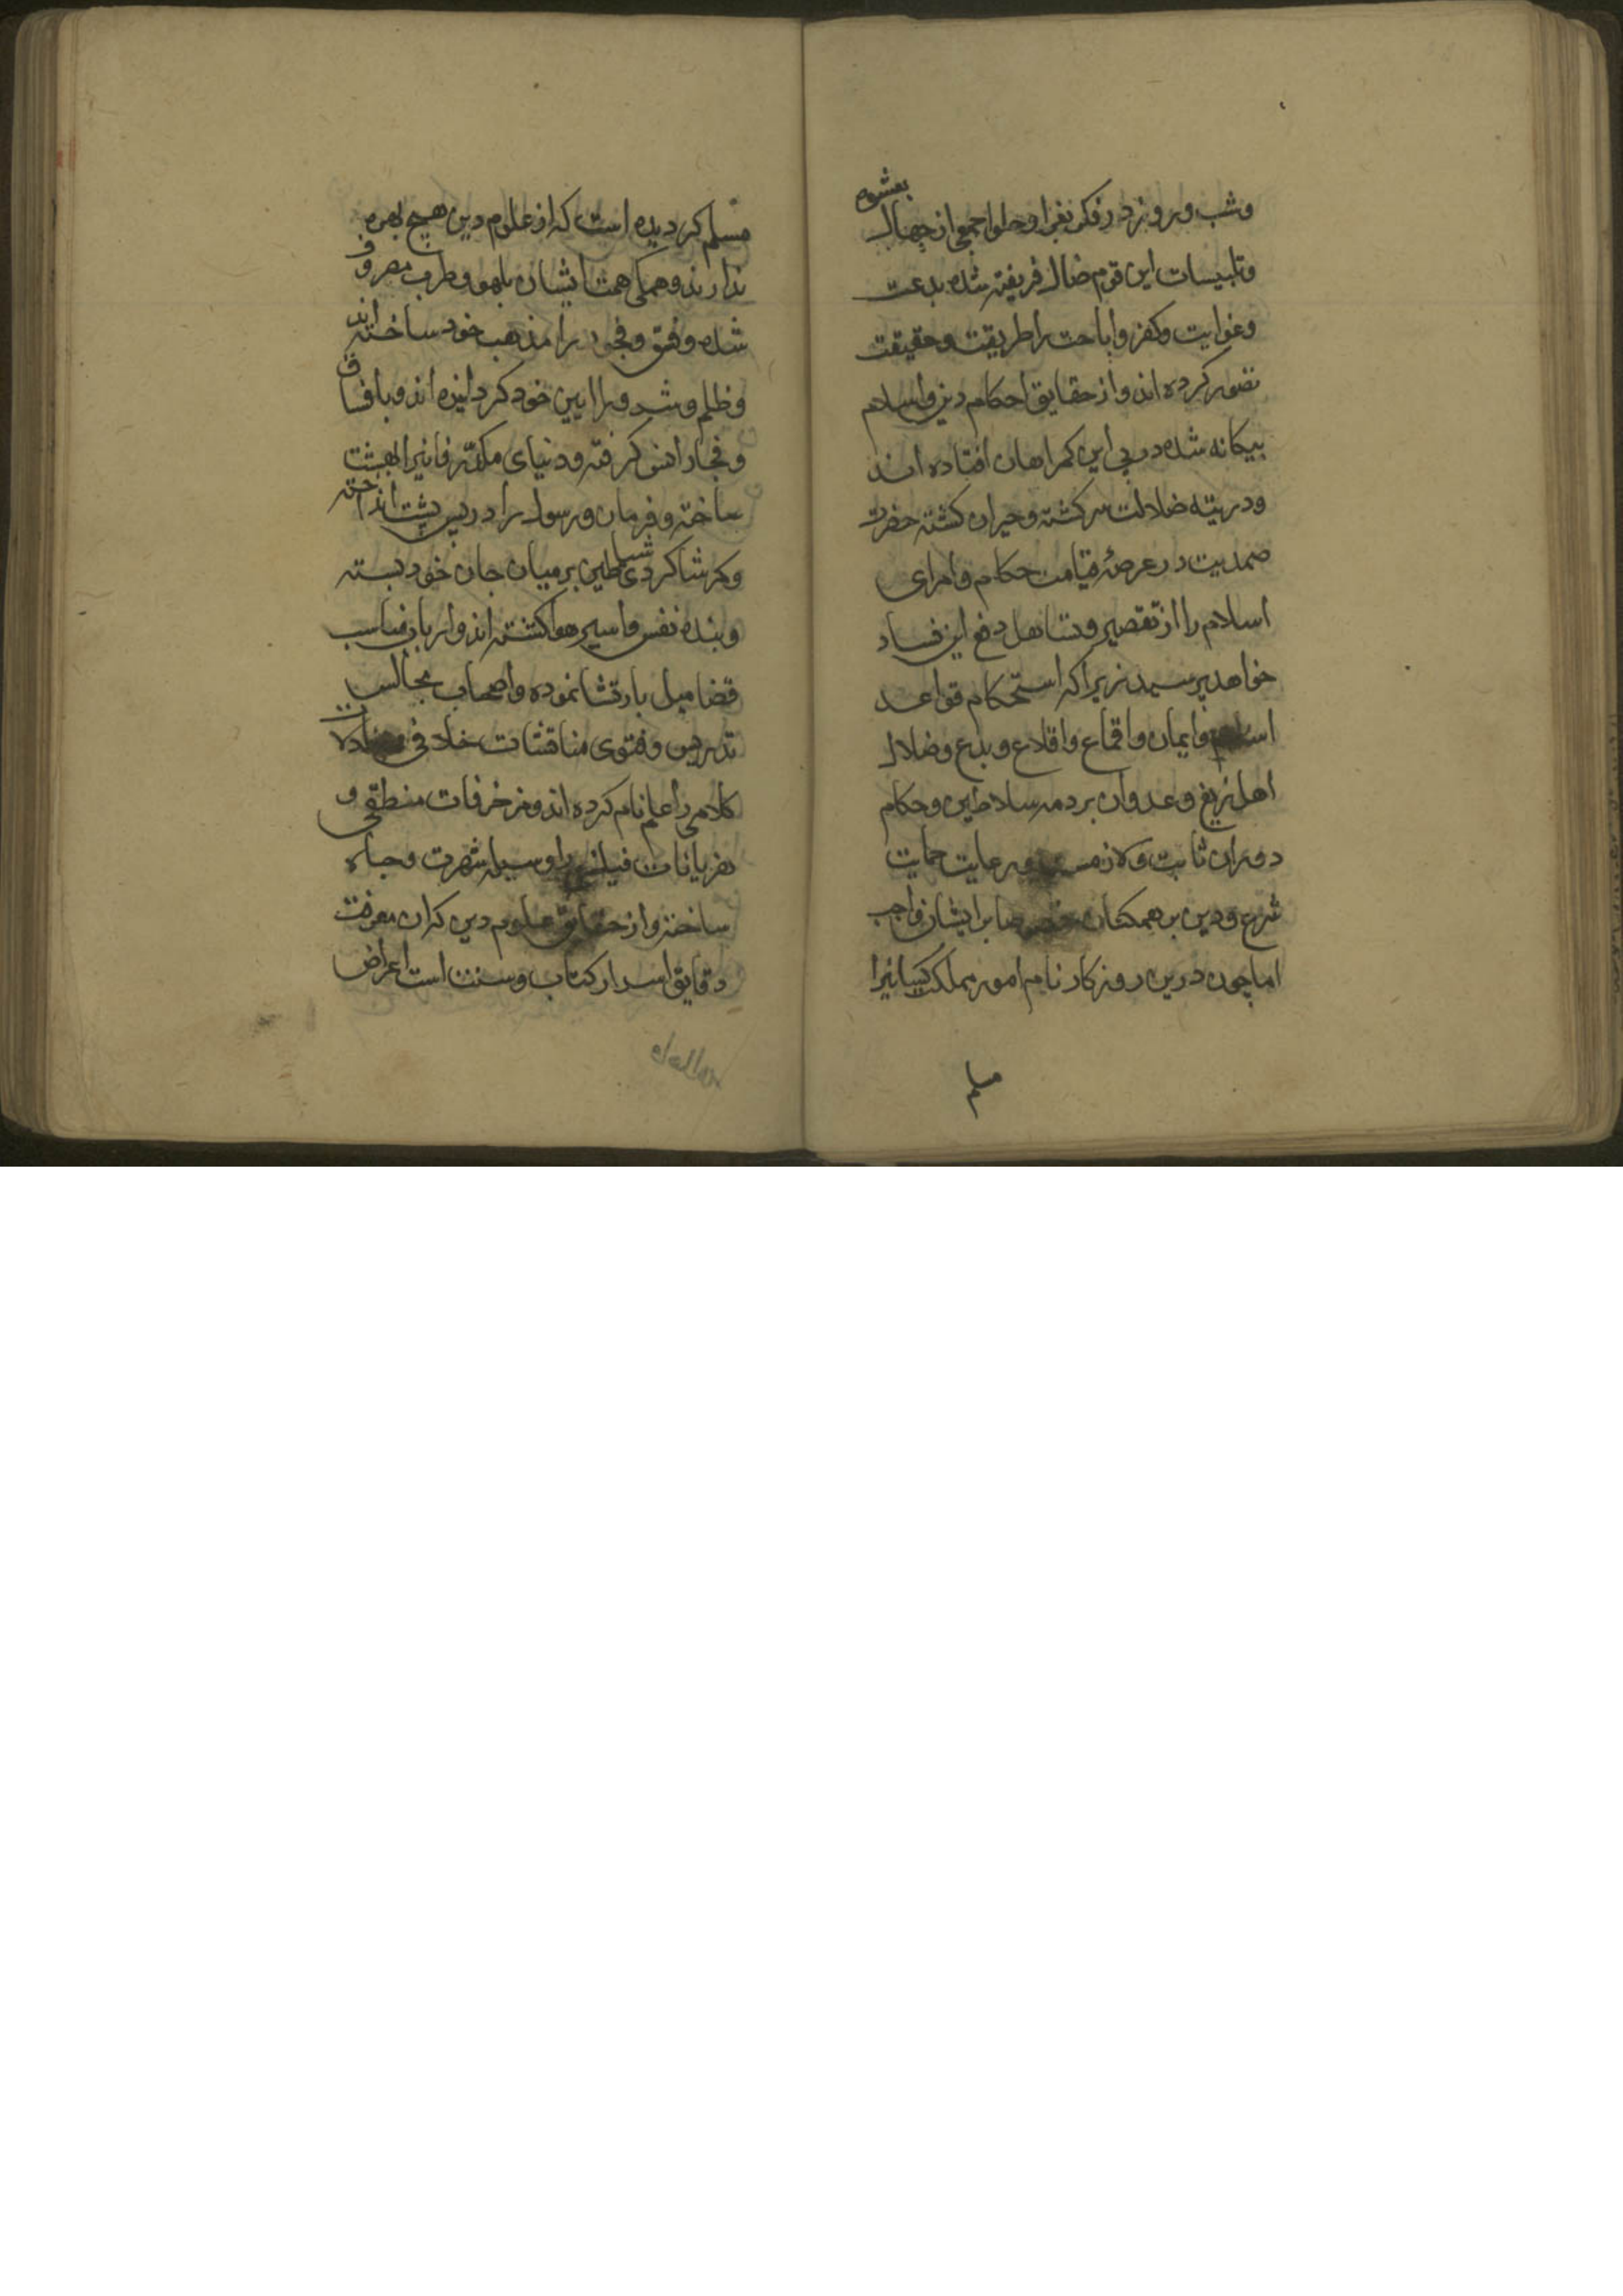 وشب و روز در فکر بغرا و حلوا جمعی از جهال بعشوه
وتلبیسات این قوم ضال فریفته شده بدعت
وغوایت وکفر واباحت را طریقت وحقیقت
تصور کرده اند واز حقایق احکام دین واسلام
بیکانه شده در پی این کمراهان افتاده اند
ودر تیه ضلالت سرکشته وحیران کشته حضرت
صمدیت در عرصهٔ قیامت حکام وامرای
اسلام را از تقصیر وتساهل دفع این فساد
خواهد پرسید زیرا که استحکام قواعد
اسلام وایمان واقماع واقلاع وبدع وضلال
اهل زیغ وعدوان بر ذمه سلاطین وحکام
دوران ثابت ولازمست ورعایت حمایت
شرع ودین بر همکنان خصوصا بر ایشان واجب
اما چون درین روزکار نام امور مملکت کسانیرا
مسلم
مسلم کردیده است که از علوم دین هیچ بهره
ندارند وهمکی همت ایشان بلهو وطرب مصروف
شده وفسق وفجور را مذهب خود ساخته اند
وظلم وشر را ایین خود کردانیده اند وبا فساق
وفجار انس کرفته ودنیای مکدر فانیرا بهشت
ساخته وفرمان ورسول را در پس پشت انداخته
وکمر شاکردی شیاطین بر میان جان خود بسته
وبنده نفس واسیر هوا کشته اند وارباب مناصب
قضا میل بارتشا نموده واصحاب مجالس
تدریس وفتوی مناقشات خلافی ومجادلات
کلامی را علم نام کرده اند ومزخرفات منطقی و
هذیانات فلسفی را وسیله شهرت وجاه
ساخته واز حقایق علوم دین کران معرفت
دقایق اسرار کتاب وسنت است اعراض